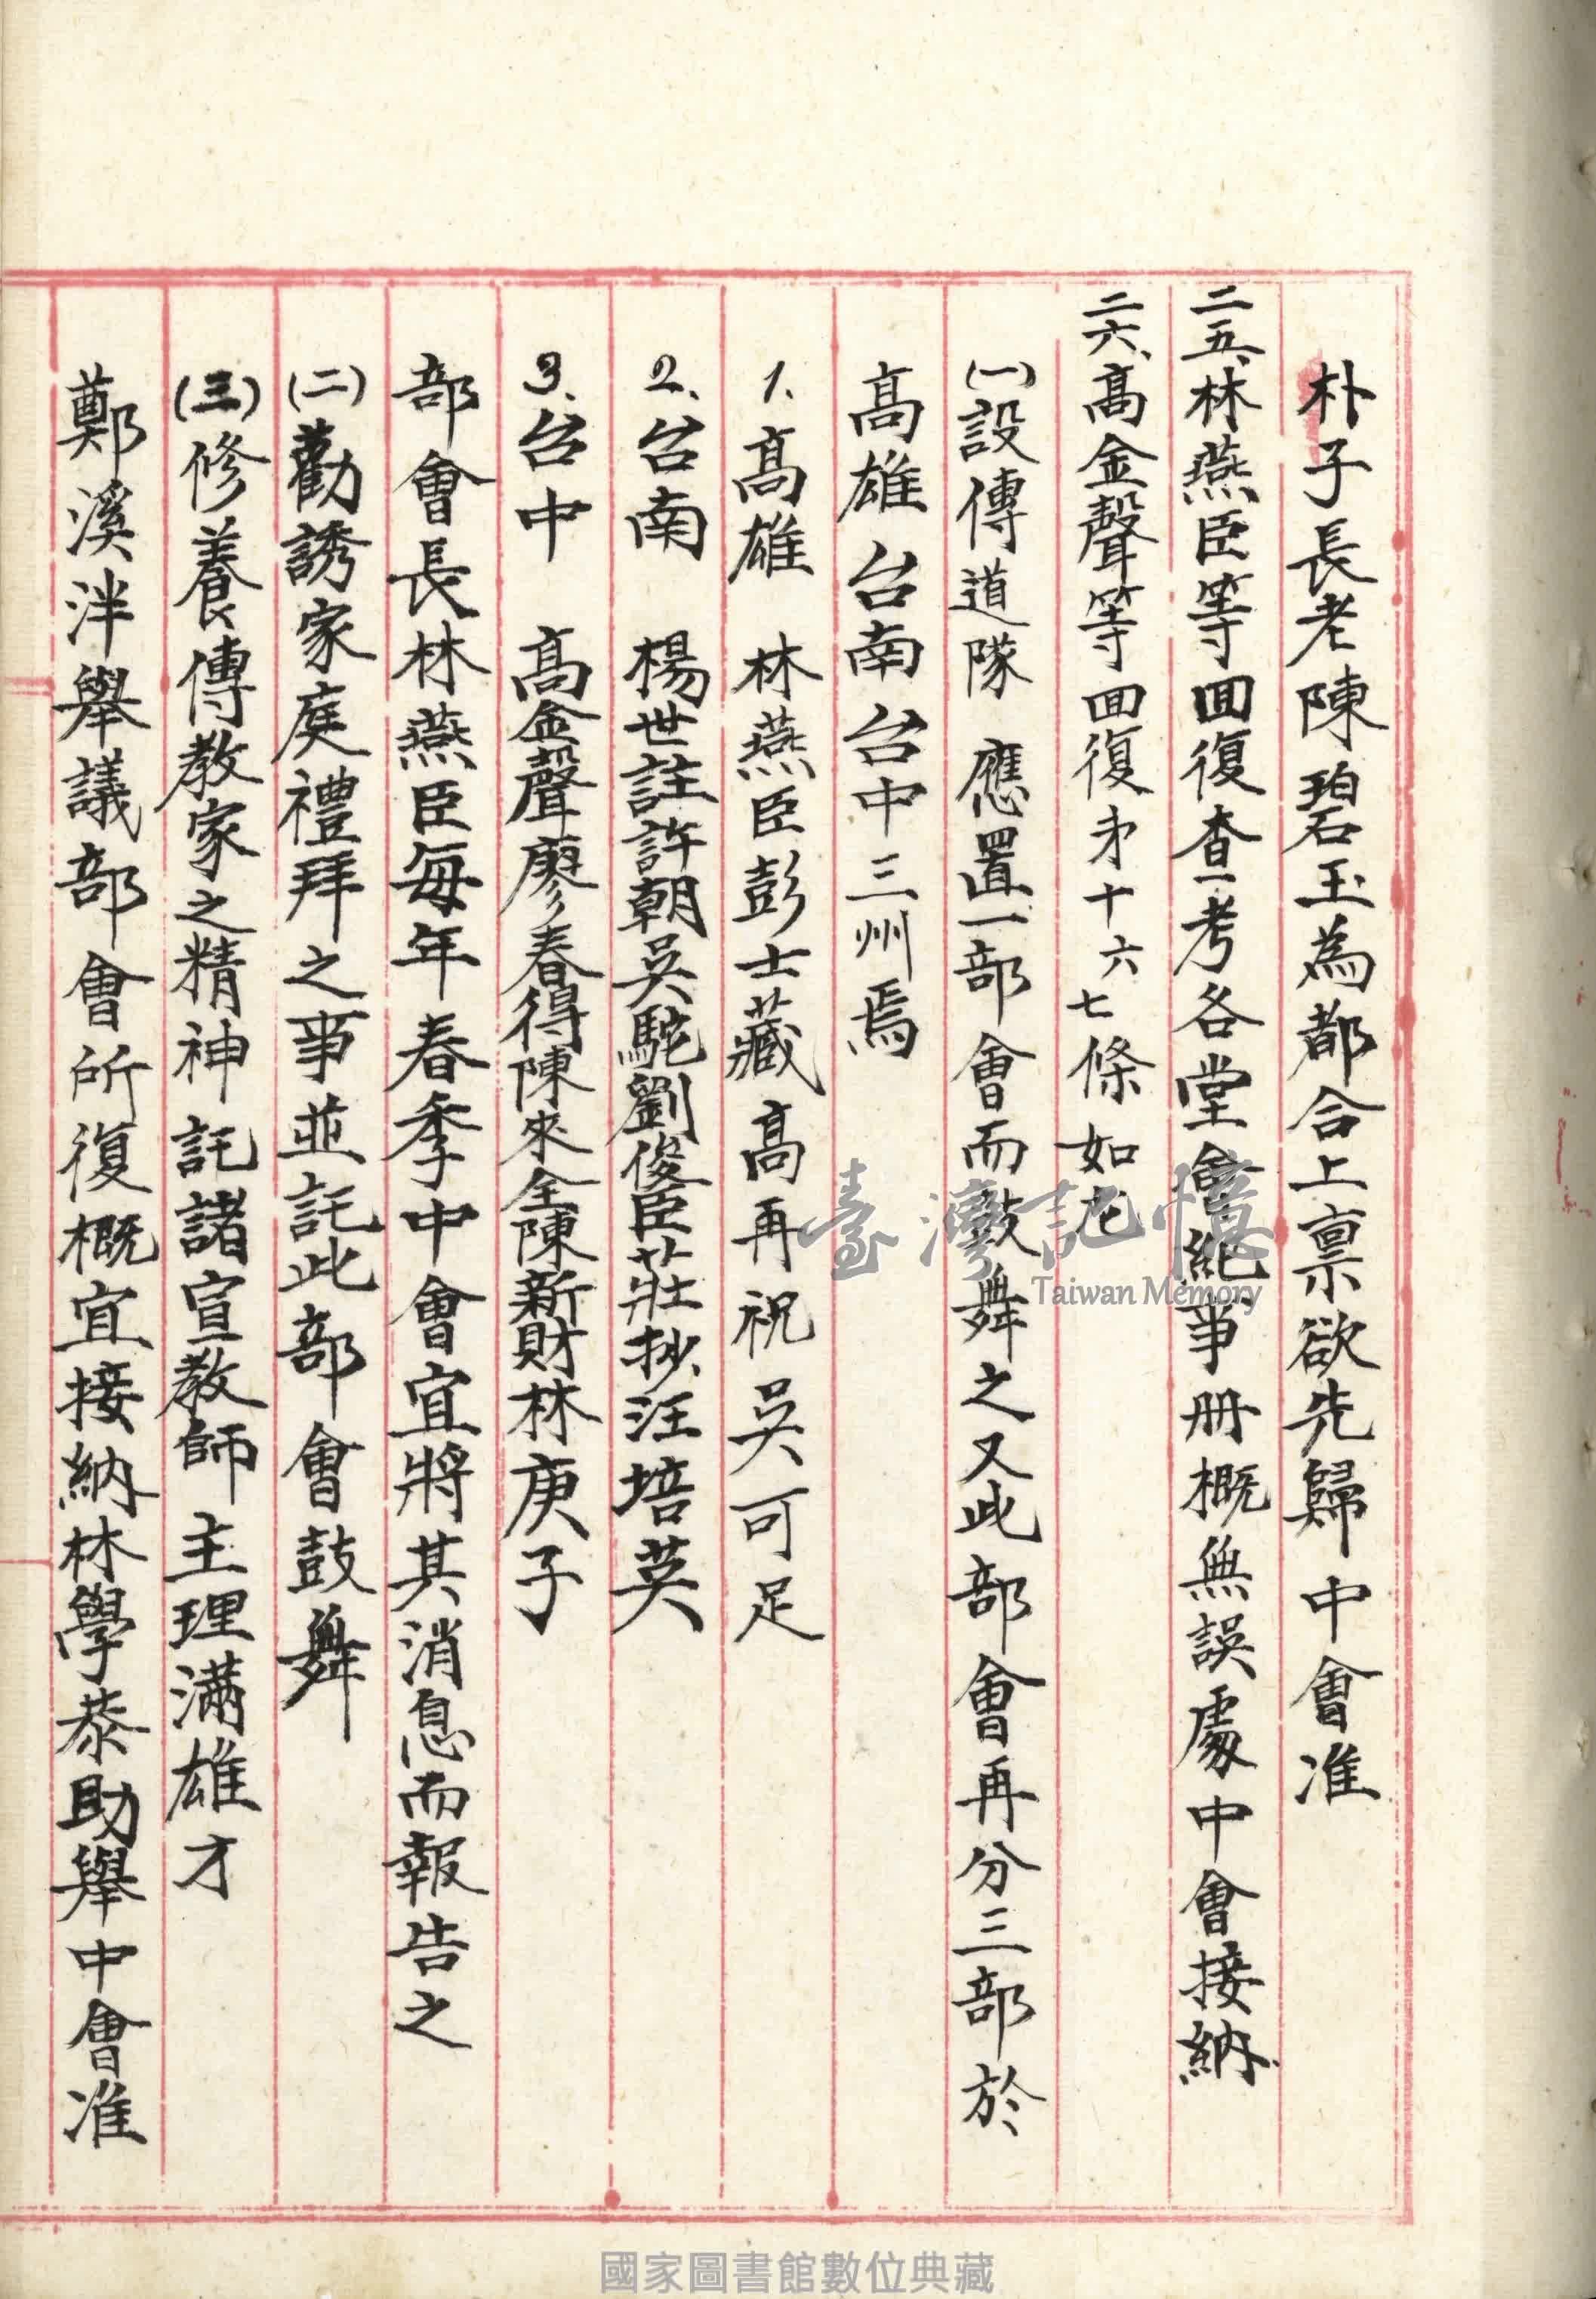 朴子長老陳碧玉為都合上禀欲先歸中會准
二五、林燕臣等回復查考各堂會紀事册概無誤處中會接納
二六、高金聲等回復才十六七條如左
(一)設傳道隊 應置一部會而鼓舞之又此部會再分三部於
高雄台南台中三州焉
1、高雄 林燕臣彭士藏高再祝吳可足
2、台南 楊世註許朝吳駝劉俊臣莊抄汪培英
3、台中 高金聲廖春得陳來全陳新財林庚子
部會長林燕臣每年春季中會宜將其消息而報告之
(二)勸誘家庭禮拜之事並託此部會鼓舞
(三)修養傳教家之精神託諸宣教師主理滿雄才
鄭溪泮舉議部會所復概宜接納林學恭助舉中會准
臺灣記憶
Taiwan Memory
國家圖書館數位典藏